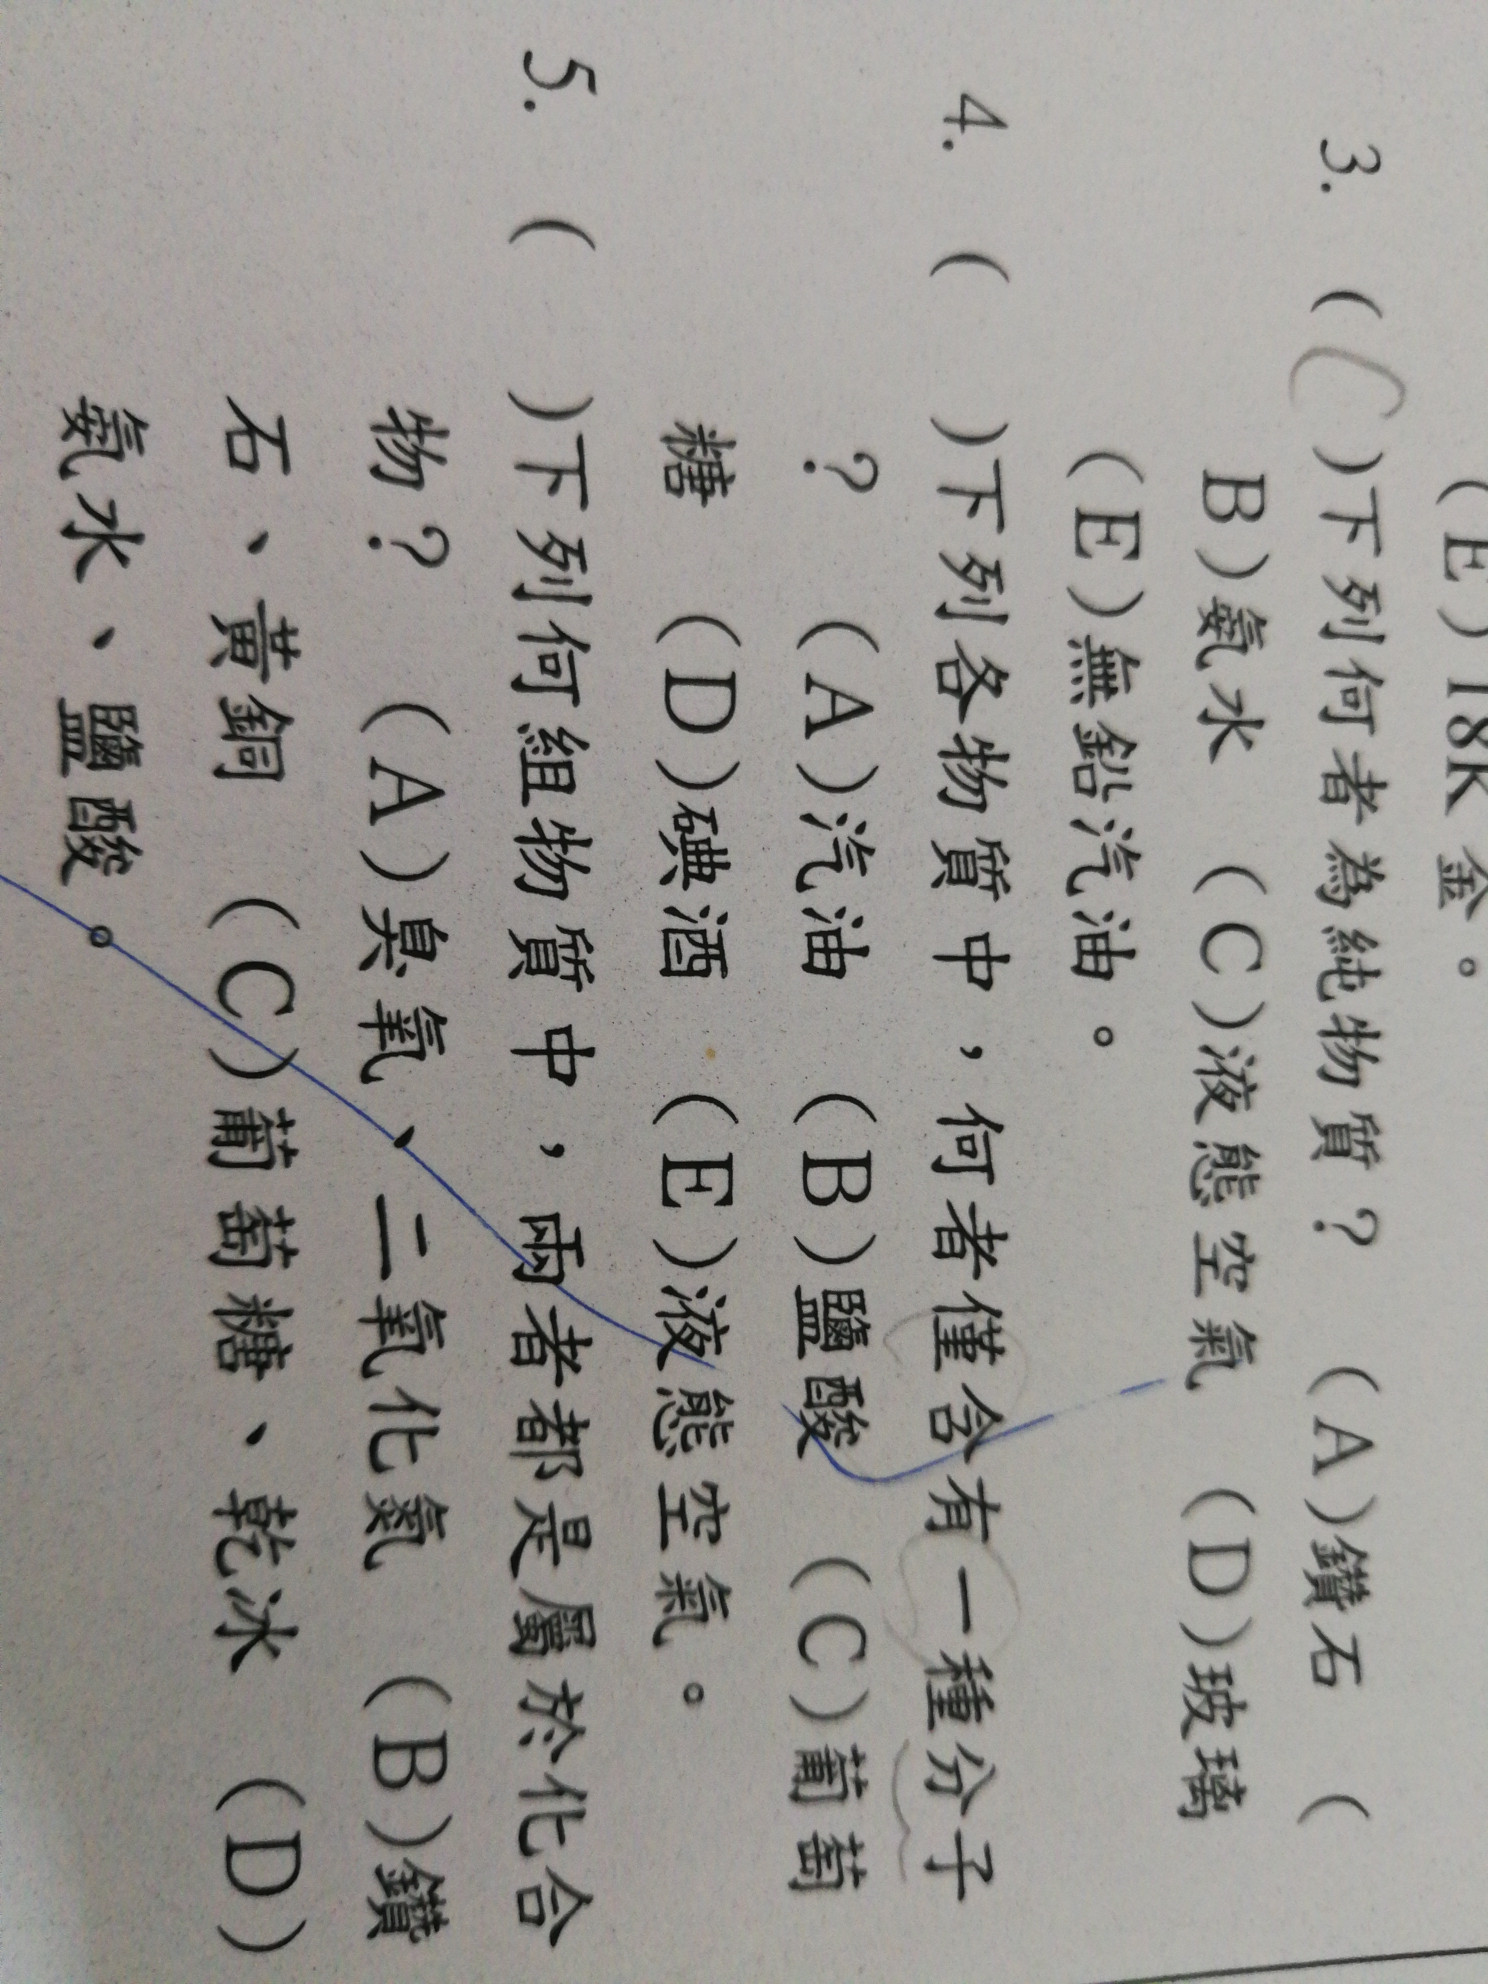 (E)18K 金。
3. (C)下列何者為純物質? (A)鑽石 (
B)氨水 (C)液態空氣 (D)玻璃
(E)無鉛汽油。
4. ( )下列各物質中,何者僅含有一種分子
? (A)汽油 (B)鹽酸 (C)葡萄
糖 (D)碘酒 (E)液態空氣。
5. ( )下列何組物質中,兩者都是屬於化合
物? (A)臭氧、二氧化氮 (B)鑽
石、黃銅 (C)葡萄糖、乾冰 (D)
氨水、鹽酸。